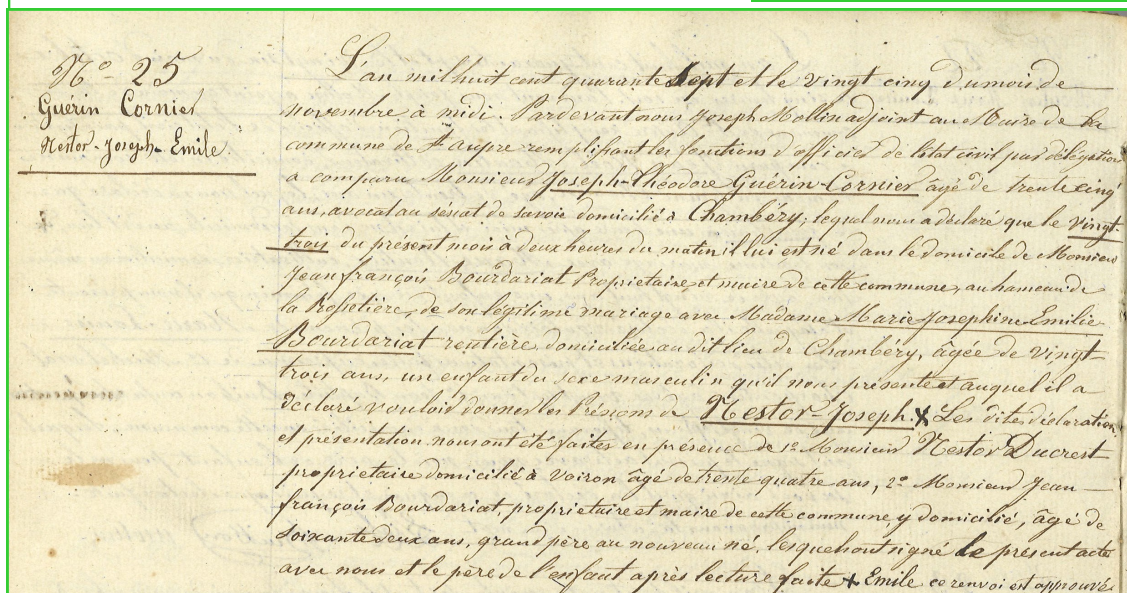 N° 25
Guérin Cornier
Nestor-Joseph-Emile
L'an mil huit cent quarante sept et le vingt cinq du mois de
novembre à midi. Pardevant nous Joseph Mollin adjoint au Maire de la
commune de St aupre remplissant les fonctions d'officier de l'état civil par délégation
a comparu Monsieur Joseph-Théodore Guérin-Cornier âgé de trente cinq
ans, avocat au sénat de savoie domicilié à Chambéry; lequel nous a declaré que le vingt-
trois du présent mois à deux heures du matin il lui est né dans le domicile de Monsieur
Jean françois Bourdariat Propriétaire et maire de cette commune, au hameau de
la Rossetière, de son légitime mariage avec Madame Marie Josephine Emilie
Bourdariat rentière domiciliée au dit lieu de Chambéry, âgée de vingt-
trois ans, un enfant du sexe masculin qu'il nous présente et auquel il a
déclaré vouloir donner les Prénoms de Nestor-Joseph. X Les dites déclaration
et présentation nous ont été faites en présence de 1° Monsieur Nestor Ducrest
propriétaire domicilié à Voiron âgé de trente quatre ans, 2° Monsieur Jean
françois Bourdariat, propriétaire et maire de cette commune y domicilié, âgé de
soixante deux ans, grand père au nouveau né, lesquels ont signé le présent acte
avec nous et le père de l'enfant après lecture faite X Emile ce renvoi est approuvé